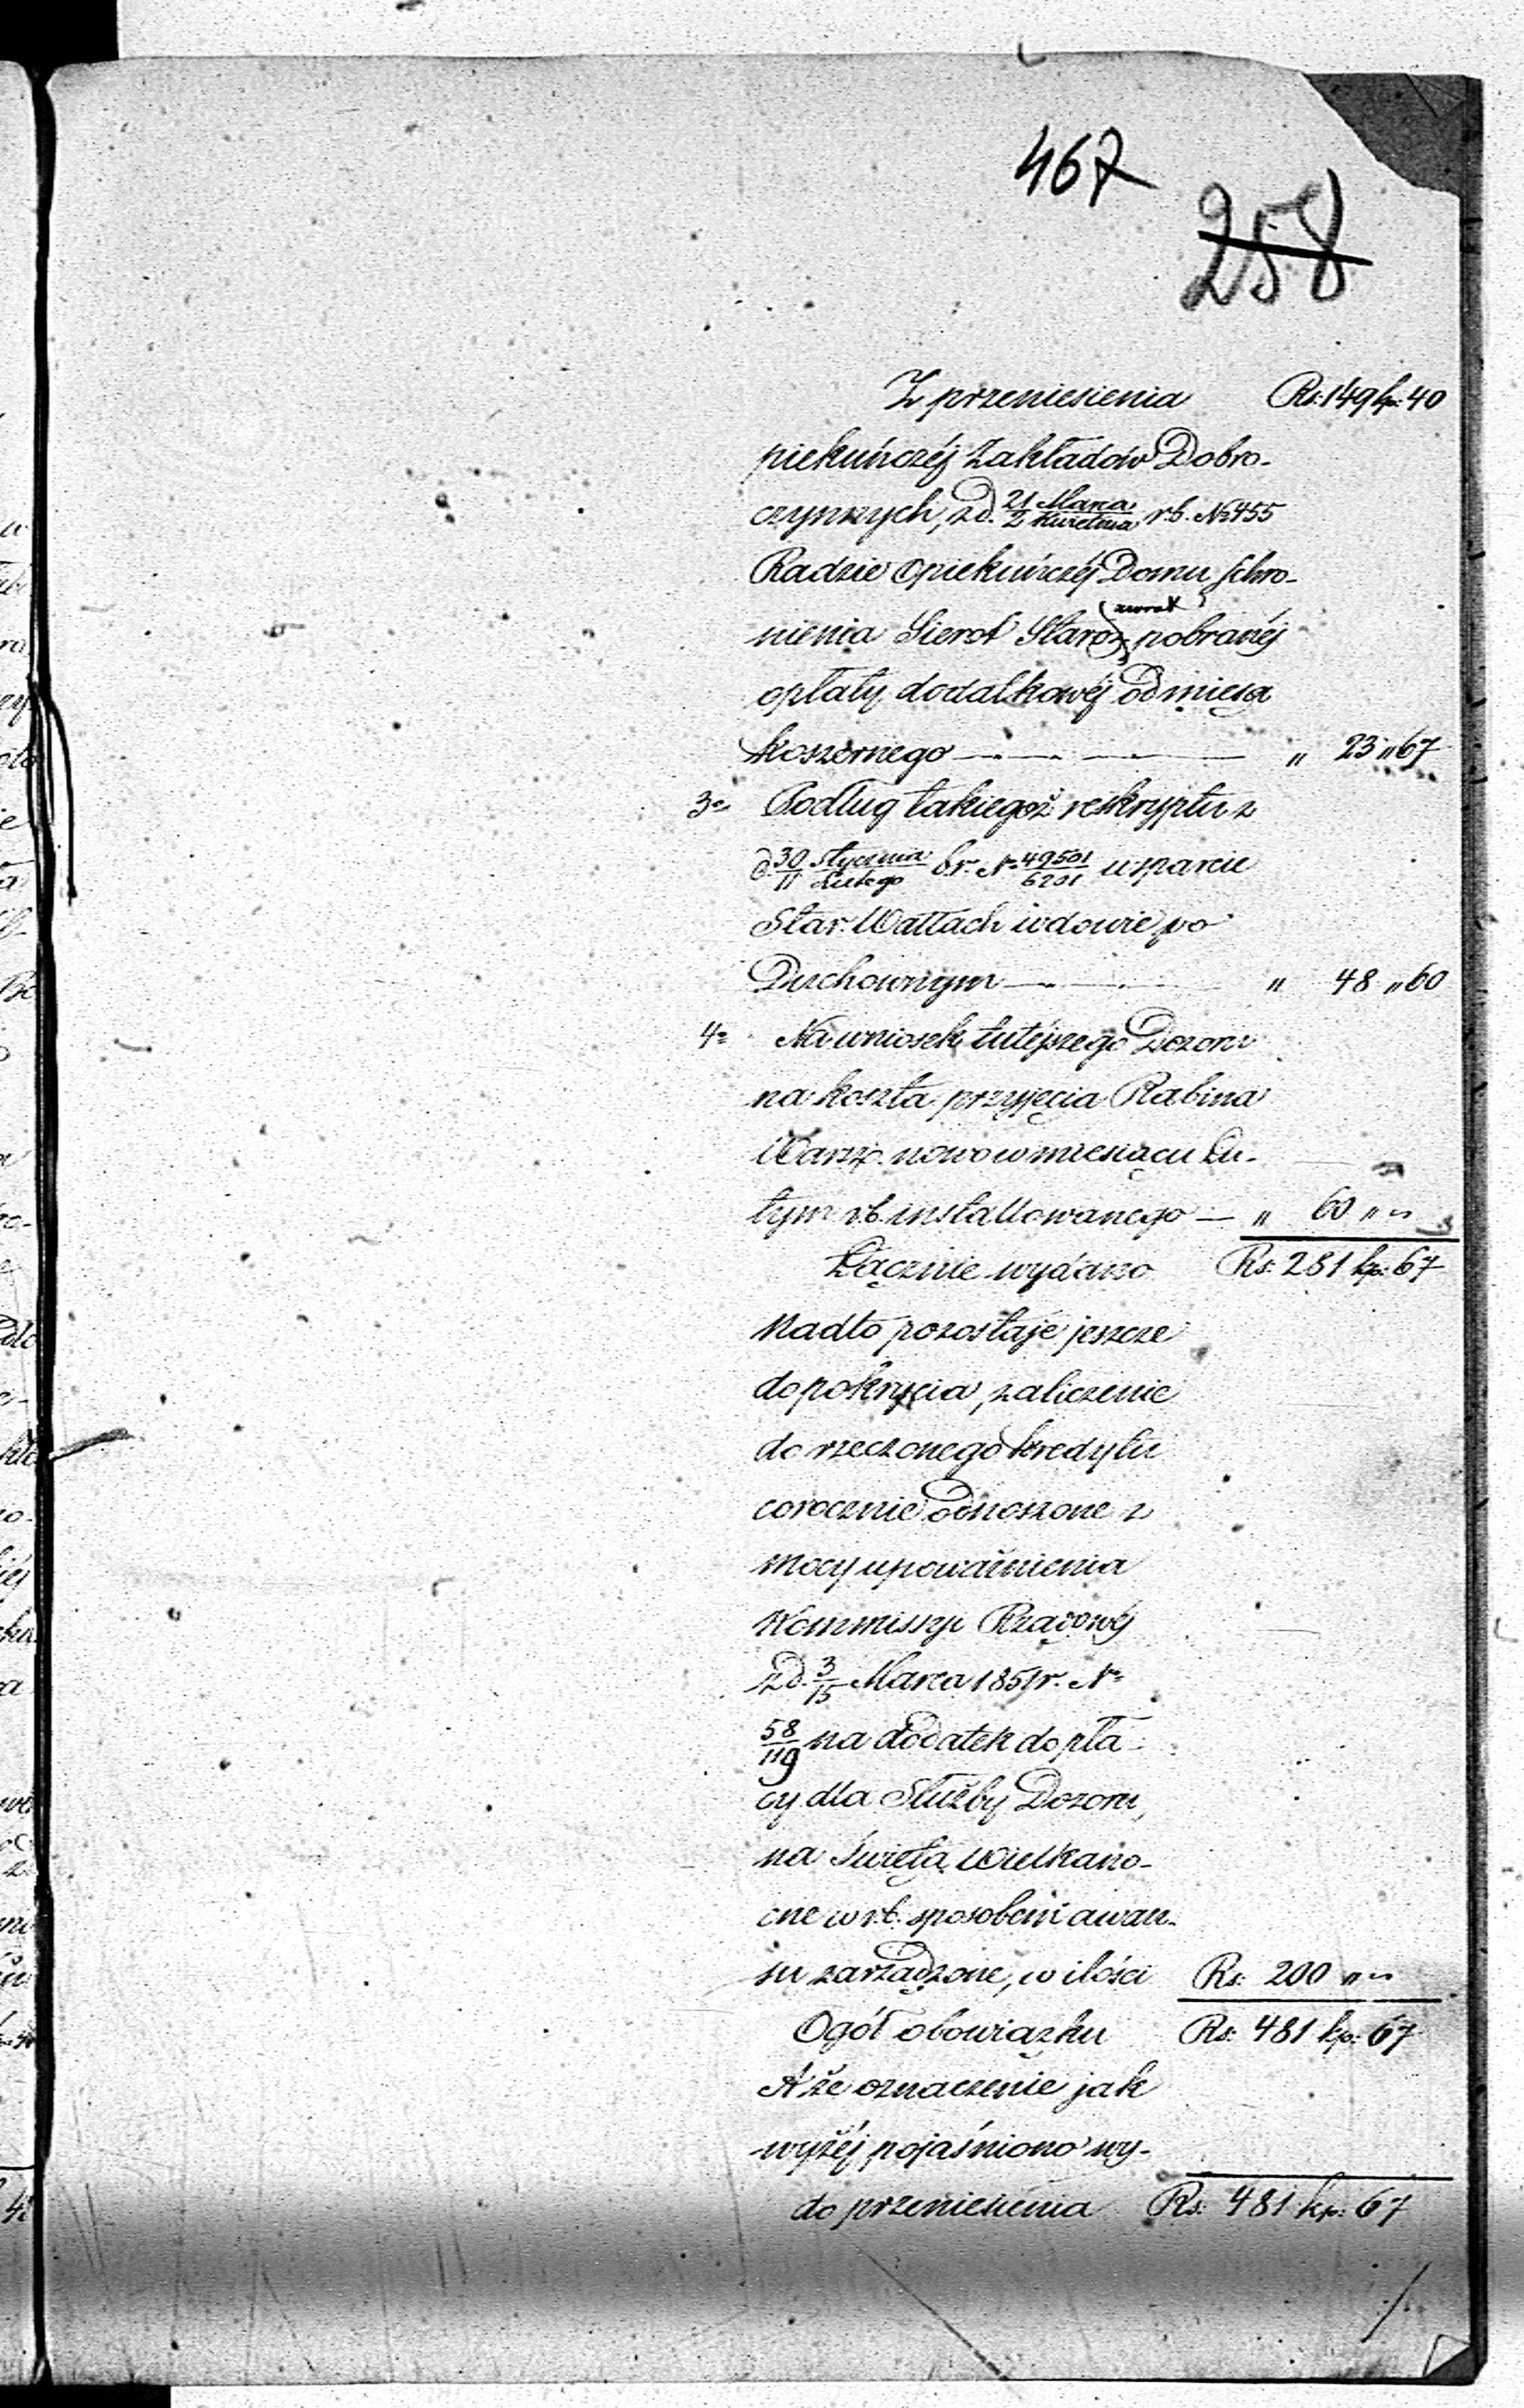 467
258
Z przeniesienia Rs: 149 kp: 40
piekuńczéj Zakładów Dobro-
czynnych, z d. 21 Marca / 2 Kwietnia r.b. № 455
Radzie Opiekuńczéj Domu Schro-
nienia Sierot i Staroz: zwrot pobranéj
opłaty dodatkowéj od mięsa
koszernego — " 23 " 67
3o Podług takiegoż reskryptu z
d. 30 Stycznia / 11 Lutego b.r. No 49501/6201 wsparcie
Star. Wallach wdowie po
Duchownym — " 48 " 60
4o Na wniosek tutéjszego Dozoru
na koszta przyjęcia Rabina
Warsz. nowo w miesiącu Lu-
tym r.b. installowanego — " 60 " "
Łącznie wydano Rs: 281 kp: 67
Nadto pozostaje jeszcze
do pokrycia, zaliczenie
do rzeczonego kredytu
corocznie odnoszone z
mocy upoważnienia
Kommissyi Rządowéj
z d. 3/15 Marca 1851 r. No
58/119 na dodatek do pła-
cy dla Służby Dozoru,
na Święta Wielkano-
cne w r.b. sposobem awan-
su zarządzone, w ilości Rs: 200 " "
Ogół obowiązku Rs: 481 kp: 67
A że oznaczenie jak
wyżéj pojaśniono wy-
do przeniesienia Rs: 481 kp: 67